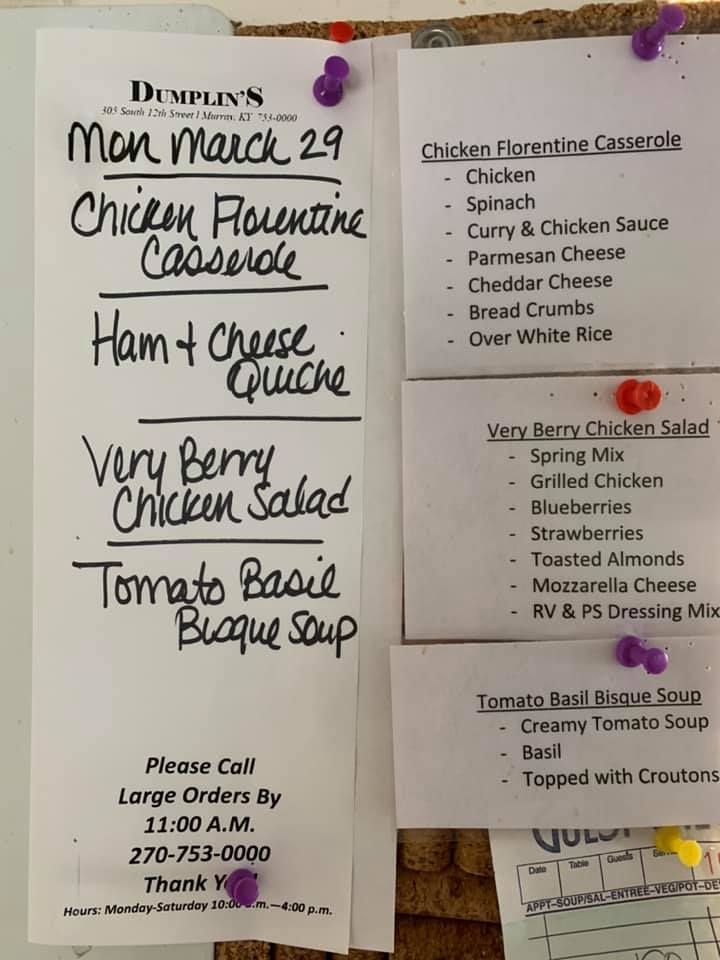 DUMPLIN'S
305 South 12th Street | Murray, KY 753-0000
Mon March 29
Chicken Florentine
Casserole
Ham + Cheese
Quiche
Very Berry
Chicken Salad
Tomato Basil
Bisque Soup
Please Call
Large Orders By
11:00 A.M.
270-753-0000
Thank
Hours: Monday-Saturday 10:00 a.m.—4:00 p.m.
Chicken Florentine Casserole
- Chicken
- Spinach
- Curry & Chicken Sauce
- Parmesan Cheese
- Cheddar Cheese
- Bread Crumbs
- Over White Rice
Very Berry Chicken Salad
- Spring Mix
- Grilled Chicken
- Blueberries
- Strawberries
- Toasted Almonds
- Mozzarella Cheese
- RV & PS Dressing Mix
Tomato Basil Bisque Soup
- Creamy Tomato Soup
- Basil
- Topped with Croutons
Date Table Guests
APPT-SOUP/SAL-ENTREE-VEG/POT-DE